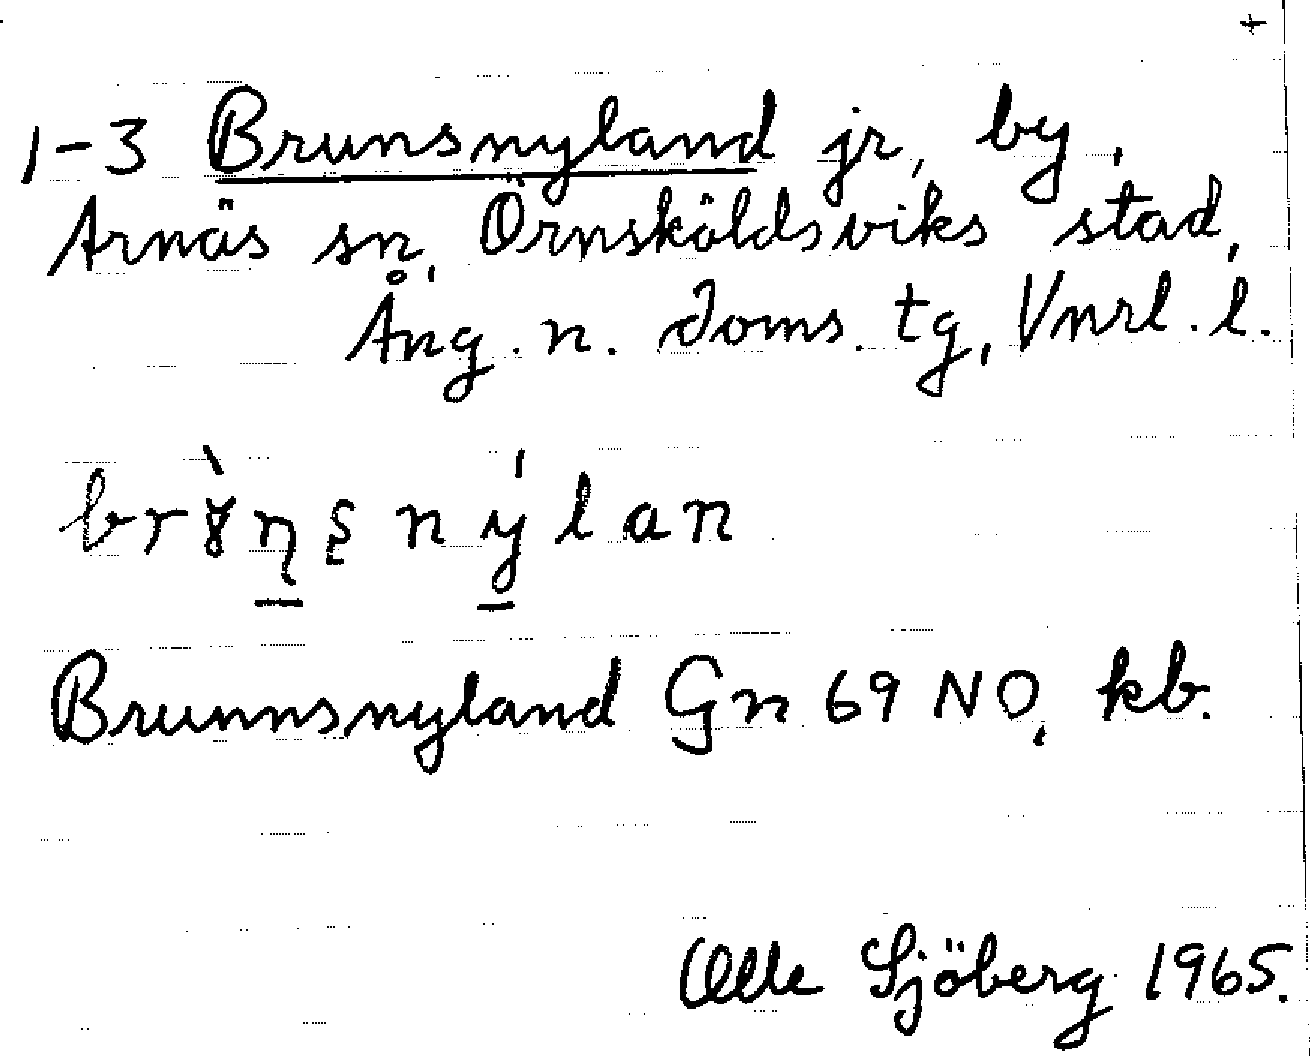 +
1-3 Brunsnyland jr, by,
Arnäs sn, Örnsköldsviks stad,
Ång. n. doms. tg, Vnrl. l.
Brunnsnyland Gn 69 NO, kb.
Olle Sjöberg 1965.